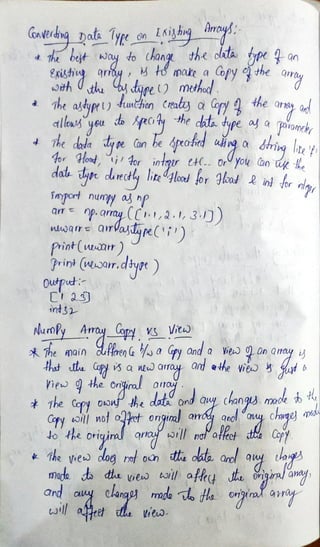 Converting Data Type on Existing Arrays:-
* The best way to change the data type of an
existing array, is to make a copy of the array
with the astype() method.
* The astype() function creates a copy of the array and
allows you to specify the data type as a parameter
* The data type can be specified using a string like 'f'
for float, 'i' for integer etc... or you can use the
data type directly like float for float & int for integer
Import numpy as np
arr = np.array([1.1, 2.1, 3.1])
newarr = arr.astype('i')
print(newarr)
print(newarr.dtype)
Output:-
[1 2 3]
int32
NumPy Array Copy vs View
* The main difference b/w a copy and a view of an array is
that the copy is a new array and the view is just a
view of the original array.
* The copy owns the data and any changes made to the
copy will not affect original array and any changes made
to the original array will not affect the copy
* The view does not own the data and any changes
made to the view will affect the original array,
and any changes made to the original array
will affect the view.